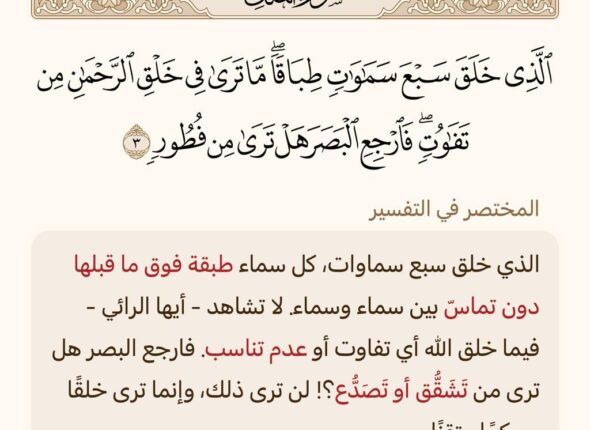 سورة الملك
ٱلَّذِى خَلَقَ سَبْعَ سَمَٰوَٰتٍ طِبَاقًا ۖ مَّا تَرَىٰ فِى خَلْقِ ٱلرَّحْمَٰنِ مِن
تَفَٰوُتٍ ۖ فَٱرْجِعِ ٱلْبَصَرَ هَلْ تَرَىٰ مِن فُطُورٍ ٣
المختصر في التفسير
الذي خلق سبع سماوات، كل سماء طبقة فوق ما قبلها
دون تماسّ بين سماء وسماء. لا تشاهد - أيها الرائي -
فيما خلق الله أي تفاوت أو عدم تناسب. فارجع البصر هل
ترى من تَشَقُّق أو تَصَدُّع؟! لن ترى ذلك، وإنما ترى خلقًا